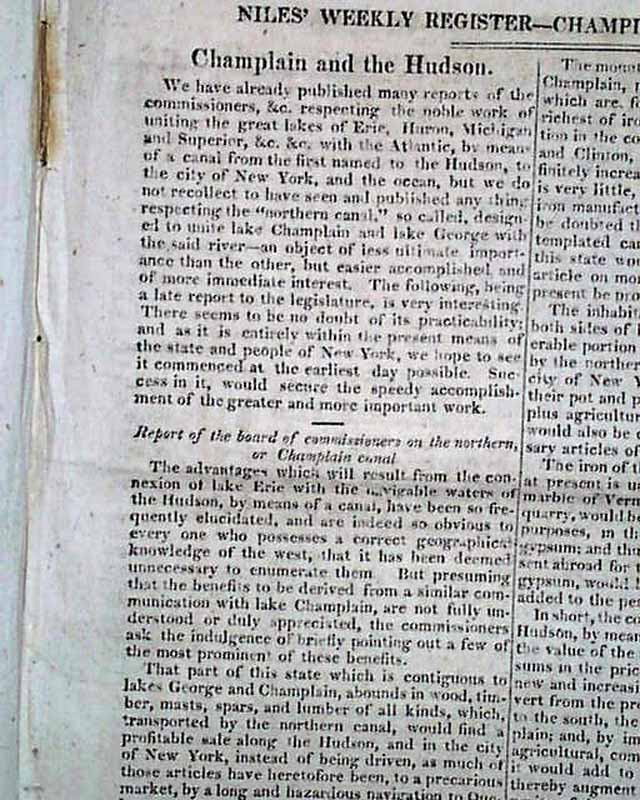 NILES' WEEKLY REGISTER—CHAMPI
Champlain and the Hudson.
We have already published many reports of the
commissioners, &c. respecting the noble work of
uniting the great lakes of Erie, Huron, Michigan
and Superior, &c. &c. with the Atlantic, by means
of a canal from the first named to the Hudson, to
the city of New York, and the ocean, but we do
not recollect to have seen and published any thing
respecting the "northern canal," so called, design-
ed to unite lake Champlain and lake George with
the said river—an object of less ultimate import-
ance than the other, but easier accomplished and
of more immediate interest. The following, being
a late report to the legislature, is very interesting.
There seems to be no doubt of its practicability;
and as it is entirely within the present means of
the state and people of New York, we hope to see
it commenced at the earliest day possible. Suc-
cess in it, would secure the speedy accomplish-
ment of the greater and more important work.
Report of the board of commissioners on the northern,
or Champlain canal
The advantages which will result from the con-
nexion of lake Erie with the navigable waters of
the Hudson, by means of a canal, have been so fre-
quently elucidated, and are indeed so obvious to
every one who possesses a correct geographical
knowledge of the west, that it has been deemed
unnecessary to enumerate them. But presuming
that the benefits to be derived from a similar com-
munication with lake Champlain, are not fully un-
derstood or duly appreciated, the commissioners
ask the indulgence of briefly pointing out a few of
the most prominent of these benefits.
That part of this state which is contiguous to
lakes George and Champlain, abounds in wood, tim-
ber, masts, spars, and lumber of all kinds, which,
transported by the northern canal, would find a
profitable sale along the Hudson, and in the city
of New York, instead of being driven, as much of
those articles have heretofore been, to a precarious
market, by a long and hazardous navigation to Que-
The mount
Champlain,
which are, f
richest of iro
tion in the co
and Clinton,
finitely increa
is very little,
iron manufact
be doubted th
templated can
this state wou
article on mo
present be pro
The inhabit
both sides of l
erable portion
by the norther
city of New Y
their pot and p
plus agricultur
would also be
sary articles of
The iron of t
at present is u
marble of Verm
quarry, would be
purposes, in th
gypsum; and thu
sent abroad for t
gypsum, would
added to the pe
In short, the co
Hudson, by mean
the value of the
sums in the pric
new and increasi
vert from the pr
to the south, the
plain; and, by im
agricultural, com
it would add to
thereby augment